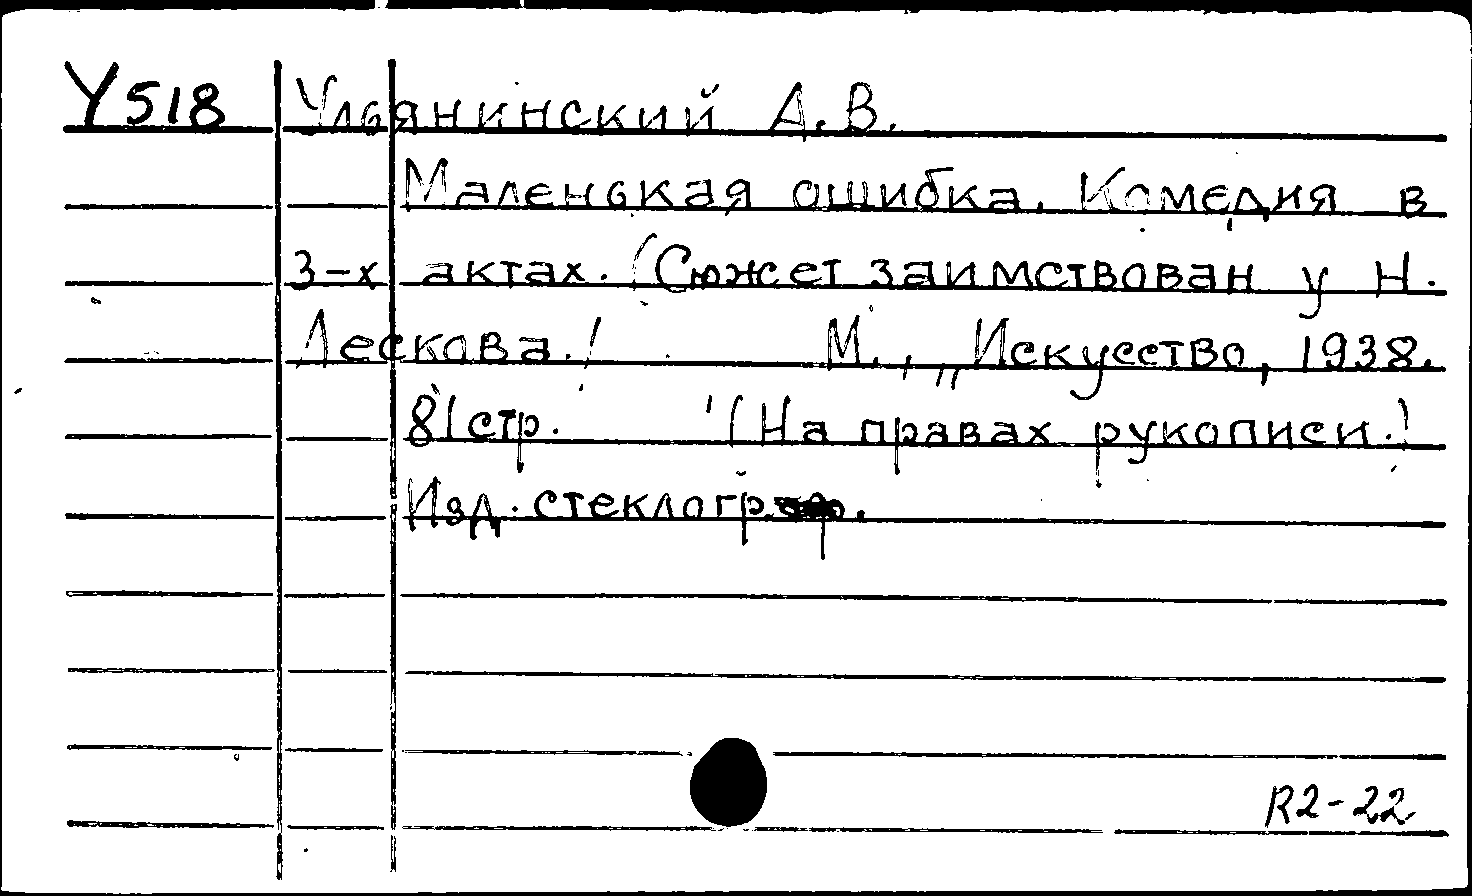 У518 Ульянинский А.В.
Маленькая ошибка. Комедия в
3-х актах. (Сюжет заимствован у Н.
Лескова.) М., „Искусство, 1938.
81стр. (На правах рукописи.)
Изд. стеклогр.
R2-22